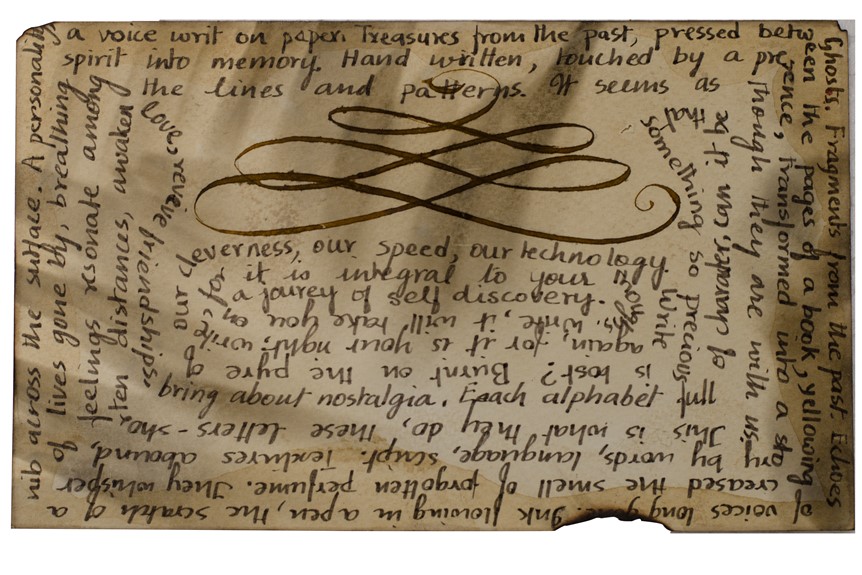 Ghosts. Fragments from the past. Echoes
of voices long gone. Ink flowing in a pen, the scratch of a
nib across the surface. A personality,
a voice writ on paper. Treasures from the past, pressed bet
ween the pages of a book, yellowing
creased the smell of forgotten perfume. They whisper
of lives gone by, breathing
spirit into memory. Hand written, touched by a pre
sence, transformed into a sto
ry by words, language, script. Textures abound,
feelings resonate among
the lines and patterns. It seems as
though they are with us.
This is what they do, these letters - sho
rten distances, awaken
love, reveive friendships,
bring about nostalgia. Each alphabet full
of character. Can it be
that something so precious
is lost? Burnt on the pyre of
our cleverness, our speed, our technology.
Write
again, for it is your right; write
for, it is integral to your
Write, it will take you on
a jourey of self discovery.